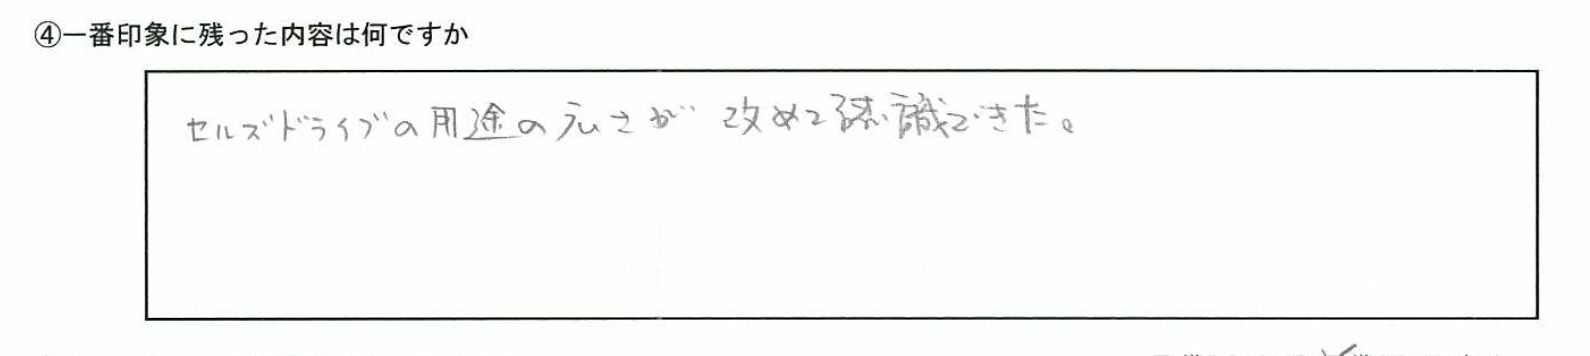 ④一番印象に残った内容は何ですか
セルズドライブの用途の広さが 改めて認識できた。